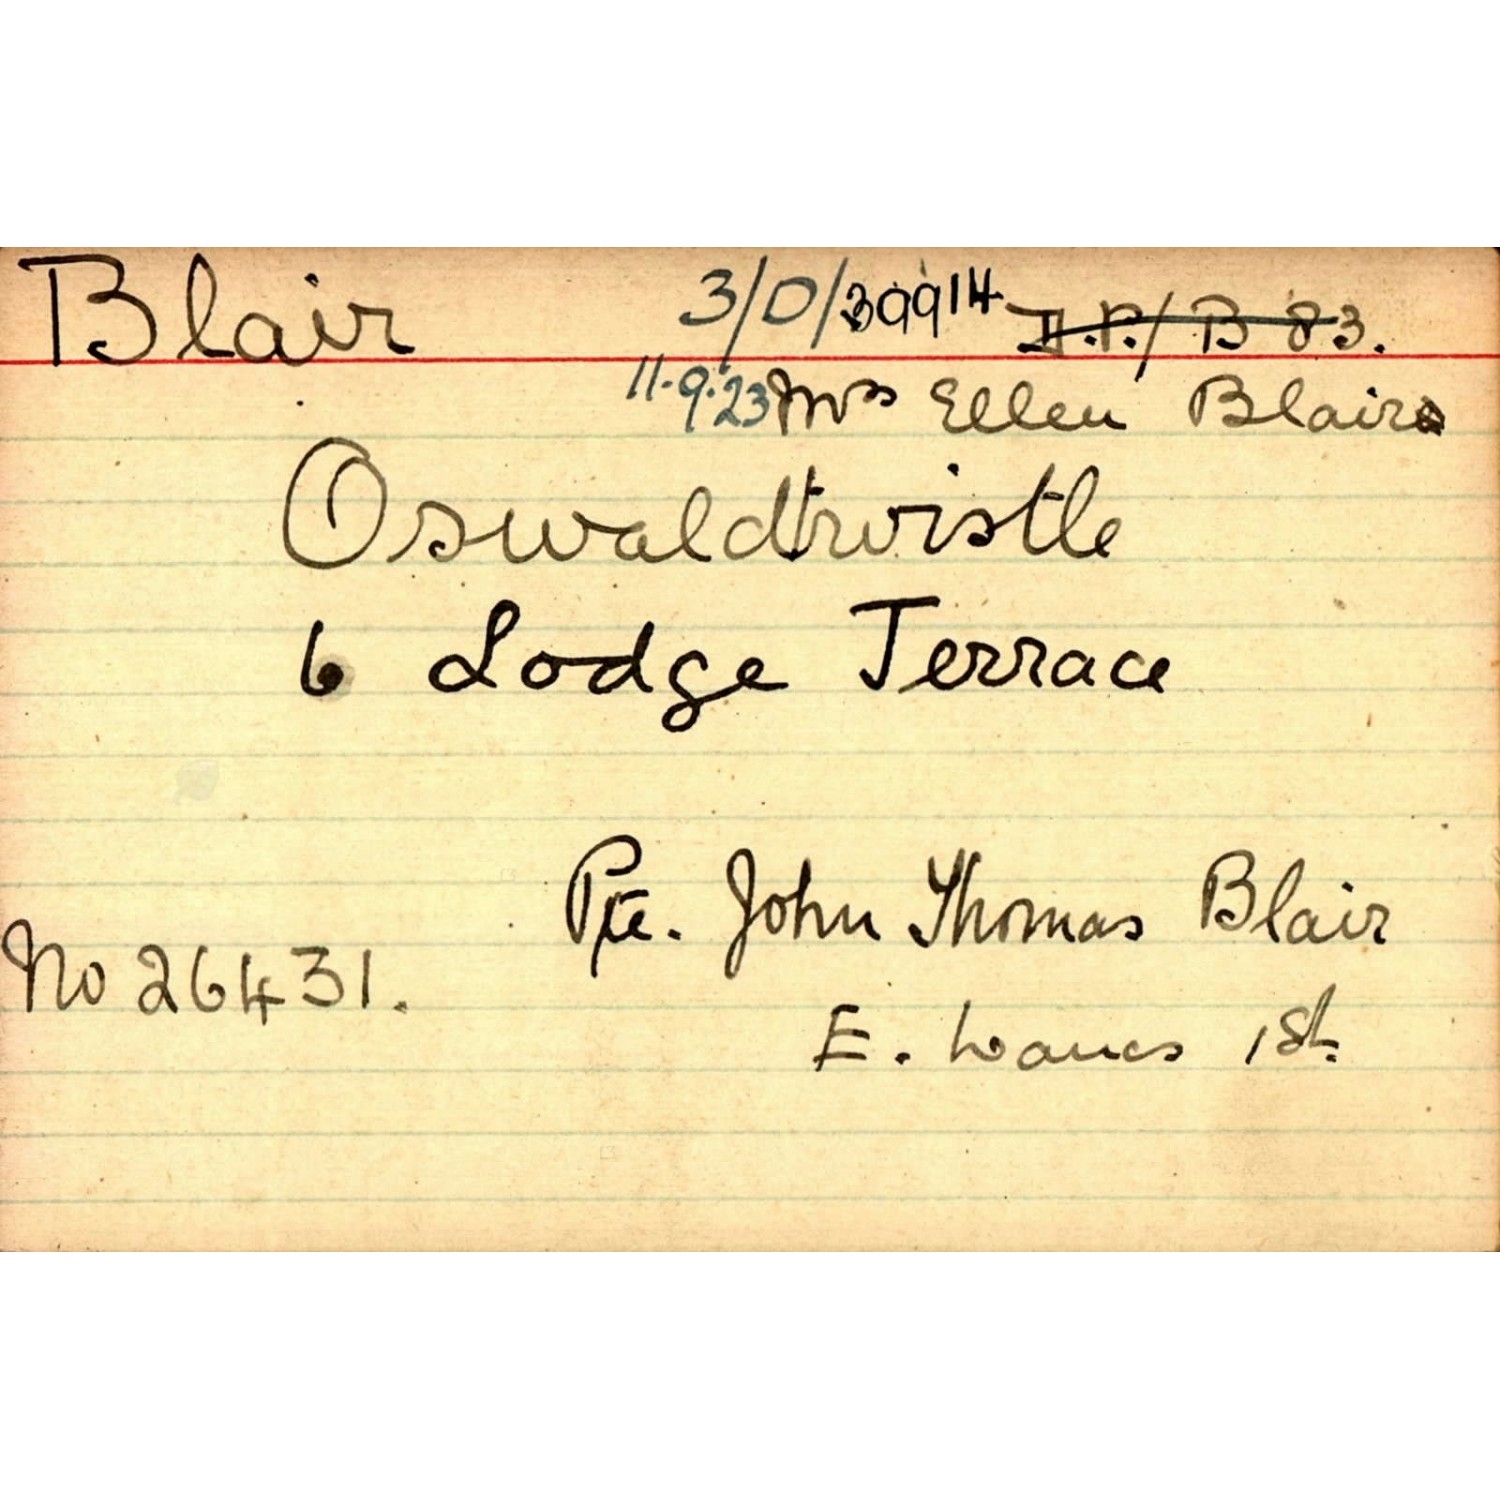 Blair 3/O/39914 D.P./B 83.
11.9.23 Mrs Ellen Blair
Oswaldtwistle
6 Lodge Terrace
Pte. John Thomas Blair
No 26431.
E. Lancs 1st.